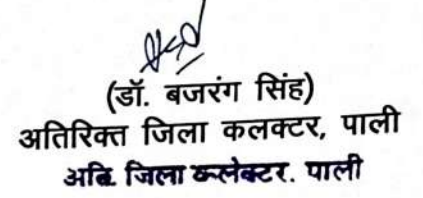 (डॉ. बजरंग सिंह)
अतिरिक्त जिला कलक्टर, पाली
अति. जिला कलेक्टर. पाली